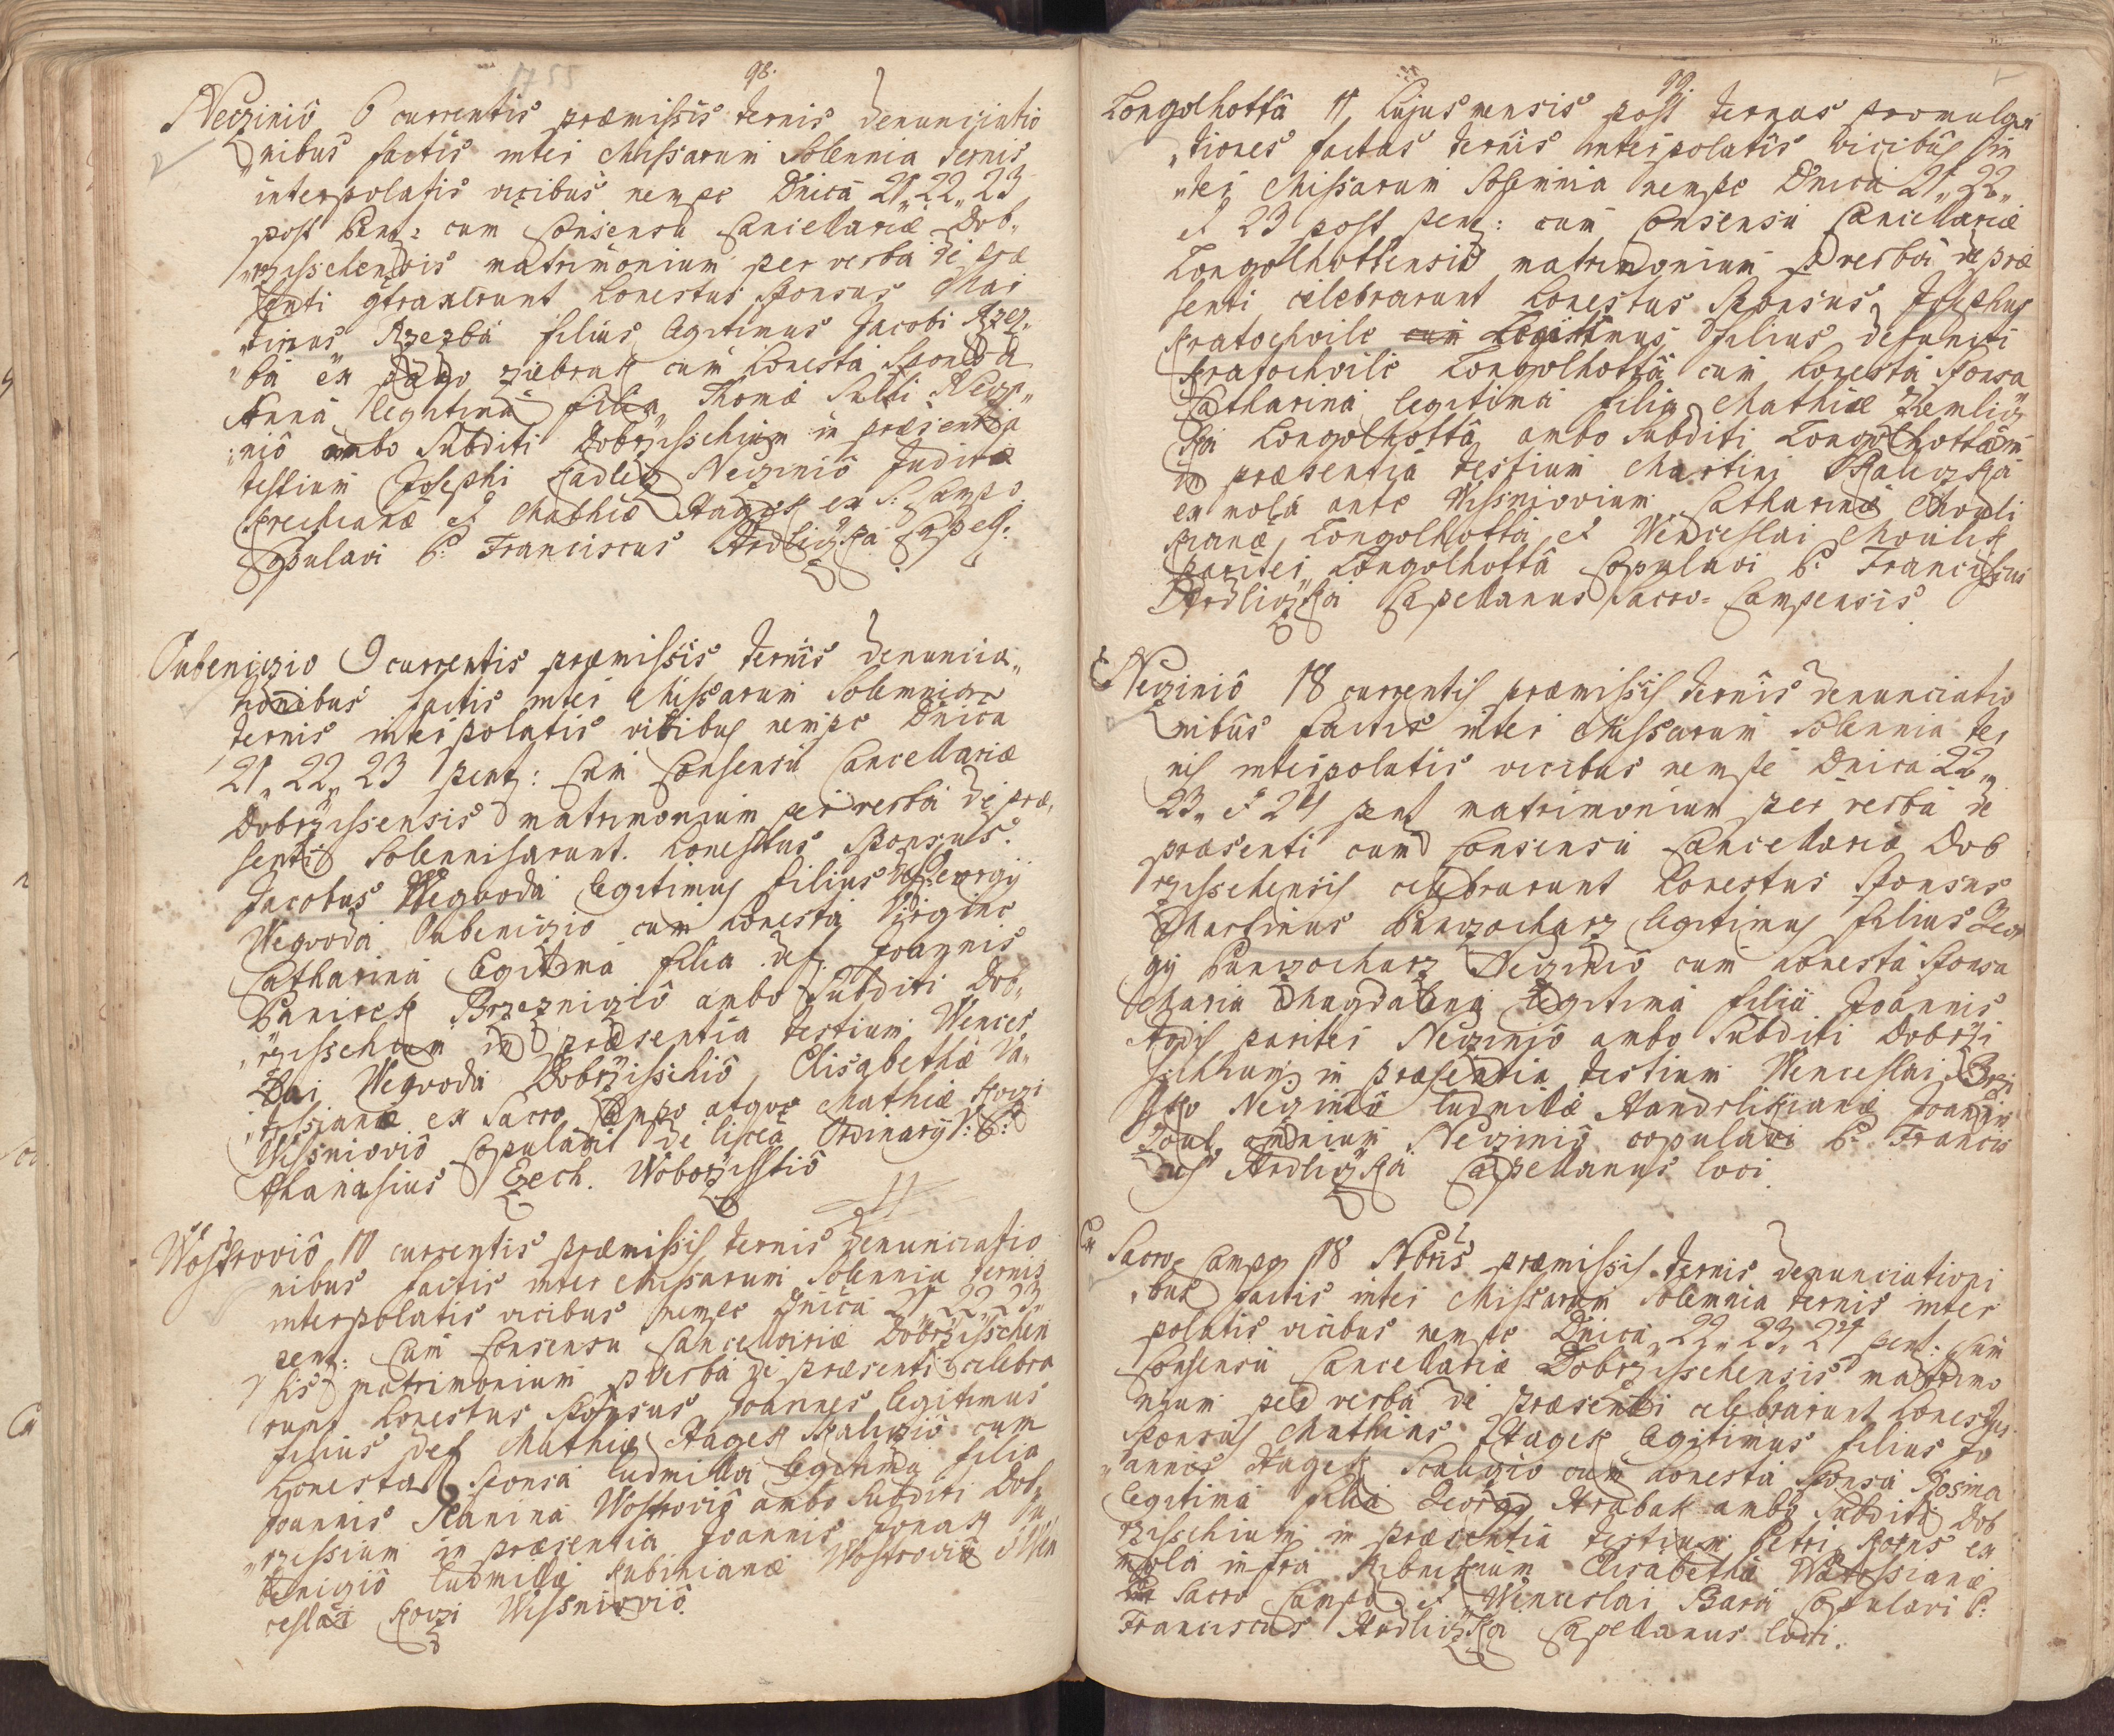 1755
98.
Neczinio 6 currentis præmissis ternis denunciatio
nibus factis inter Missarum Solennia ternis
interpolatis vicibus nempe Dnica 21,, 22,, 23
post Pent: cum Consensu Cancellariæ Dob,,
,,rzisschensis matrimonium per verba de præ
senti contraxerunt honestus Sponsus Mar
,,tinus Rzezba filius legitimus Jacobi Rzez,,
,,ba ex pago cum honesta Sponsa
Anna legitima filia Thomæ Neczi,,
,,nio ambo Subditi Dobrzisschium in præsentia
testium Josephi Kadletz Neczinio Juditæ
et Mathiæ Hages ex S: Campo
Copulavi P. Franciscus Hrdliczka Capell:
Dubeniczio 9 currentis præmissis ternis denuncia,,
tionibus factis inter Missarum Solemnia
ternis interpolatis vicibus nempe Dnica
21,, 22,, 23 pent: Cum Consensu Cancellariæ
Dobrzissensis matrimonium per verba de præ,,
senti Solennisarunt honestus Sponsus.
Jacobus Wegvoda legitimus filius def: Georgij
Wegvoda Dubeniczio cum honesta Virgine
Catharina legitima filia def. Joannis
Panicek Brzezniczio ambo Subditi Dob,,
,,rzisschium in præsentia testium Wences
lai Wegvoda Dobrzisschio, Elisabethæ Va,,
,,tossianæ ex Sacro Campo atque Mathiæ Koczi
Wissniovio Copulavit de licea Ordinarij V: P:
Athanasius Czech. Woborzisstio
Wostrovio 10 currentis præmissis ternis denunciatio
nibus factis inter Missarum Solennia ternis
interpolatis vicibus nempe Dnica 21,, 22,, 23,,
pent: Cum Consensu Cancellariæ Dobrzisschen
sis matrimonium p verba de præsenti celebra
runt honestus Sponsus Joannes legitimus
filius def Mathiæ Hages Skaliczio cum
honesta Sponsa Ludmilla legitima filia
Joannis Slanina Wostrovio ambo Subditi Dob,,
,,rzissium in præsentia Joannis Jonas Du,,
beniczio Ludmillæ Kubinianæ Wostrovio & Wen
ceslai Koczi Wissniovio
99.
Longolhotta 11 hujus mensis post ternas promulga
,,tiones factas ternis interpolatis vicibus in
,,ter Missarum Solennia nempe Dnica 21,, 22,,
et 23 post pent: cum Consensu Cancellariæ
Longolhottensis matrimonium p verba de præ
senti celebrarunt honestus Sponsus Josephus
Kratochvile cum Legittimus filius defuncti
Kratochvile Longolhotta cum honesta Sponsa
Catharina legitima filia Mathiæ Zemlicz
ka Longolhotta ambo Subditi Longolhottam
in præsentia testium Martini Skaliczka
ex mola ante Wissniovium Catharinæ Mouli
kianæ Longolhotta et Wenceslai Moulik
pariter Longolhotta Copulavi P. Franciscus
Hrdliczka Capellanus Sacro-Campensis
Neczinio 18 currentis præmissis ternis denunciatio
nibus factis inter Missarum Solennia ter
nis interpolatis vicibus nempe Dnica 22,,
23,, & 24 pent matrimonium per verba de
præsenti cum Consensu Cancellariæ Dob
rzisschensis celebrarunt honestus Sponsus
Martinus Punczochars legitimus filius Geor
gij Punczochars Neczinio cum honesta Sponsa
Maria Magdalena legitima filia Joannis
pariter Neczinio ambo Subditi Dobrzi
schium in præsentia testium Wenceslai Brzi
sko Neczinio Ludmillæ Handrlikianæ Joannis
omnium Neczinio copulavi P. Francis
cus Hrdliczka Capellanus loci.
Ex
Sacro Campo 18 Nbris præmissis ternis denunciationi
,,bus factis inter Missarum Solemnia ternis inter
polatis vicibus nempe Dnica,, 22,, 23,, 24 pent: Cum
Consensu Cancellariæ Dobrzisschensis matrimo
nium per verba de præsenti celebrarunt honestus
Sponsus Mathias Hages legitimus filius Jo
,,annes Hages Scaligio cum honesta Sponsa Rosina
legitima filia Georgij Hrabak ambo Subditi Dob
rzisschium in præsentia testium Petri Korns ex
mola infra Elisabetha Watossianæ
Sacro Campo et Wenceslai Bara Copulavi P.
Franciscus Hrdliczka Capellanus loci.